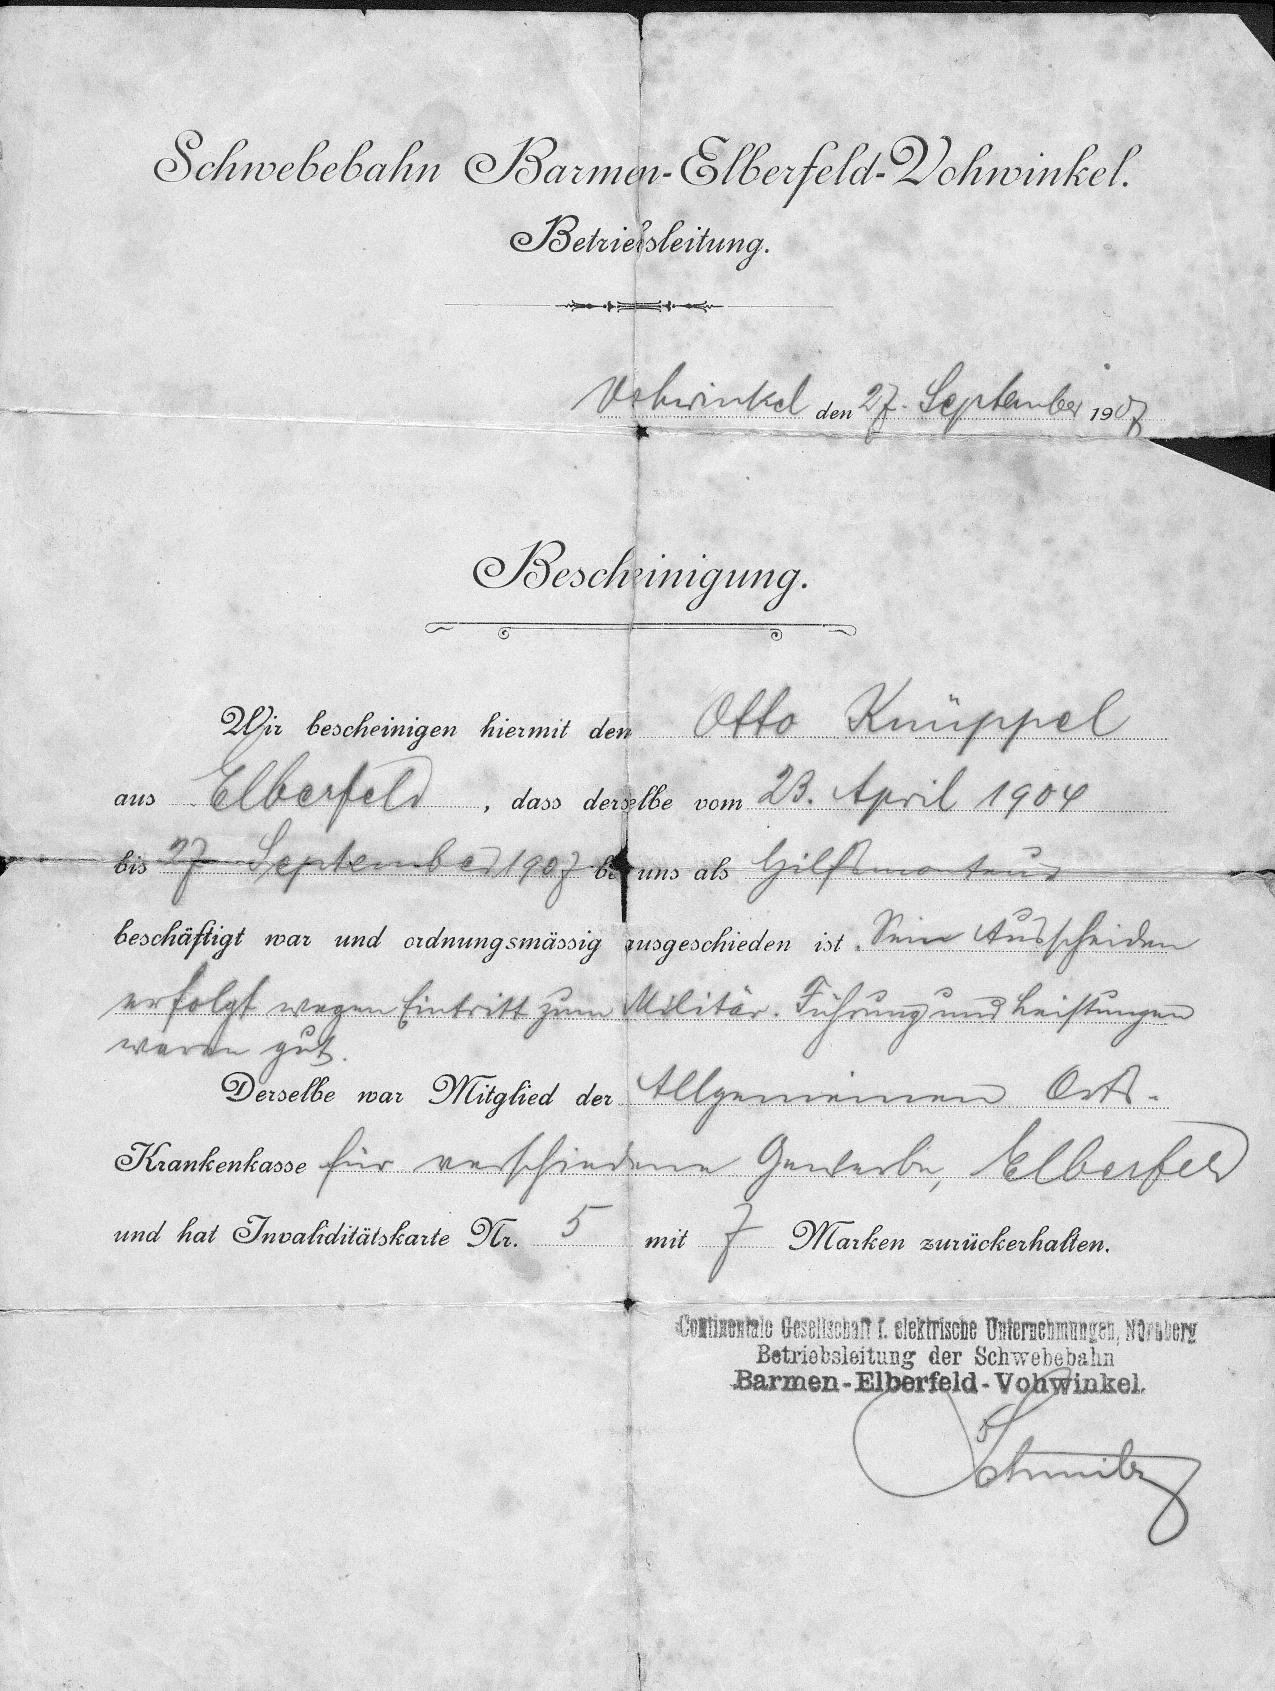 Schwebebahn Barmen-Elberfeld-Vohwinkel.
Betriebsleitung.
Vohwinkel den 27. September 1907
Bescheinigung.
Wir bescheinigen hiermit den Otto Knüppel
aus Elberfeld, dass derselbe vom 23. April 1904
bis 27 September 1907 bei uns als Hilfsmonteur
beschäftigt war und ordnungsmässig ausgeschieden ist. Sein Ausscheiden
erfolgt wegen Eintritt zum Militär. Führung und Leistungen
waren gut.
Derselbe war Mitglied der Allgemeinen Orts-
Krankenkasse für verschiedene Gewerbe, Elberfeld
und hat Invaliditätskarte Nr. 5 mit 7 Marken zurückerhalten.
Continentale Gesellschaft f. elektrische Unternehmungen, Nürnberg
Betriebsleitung der Schwebebahn
Barmen-Elberfeld-Vohwinkel.
Schmitz